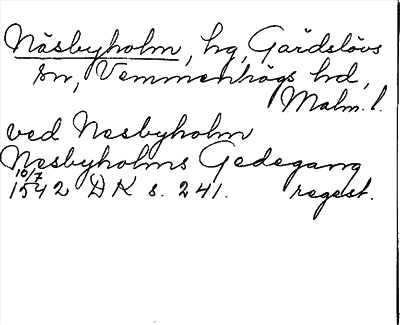 Näsbyholm, hg, Gärdslövs
sn, Vemmenhögs hd,
Malm. l.
ved Nesbyholm
Nesbyholms Gedegang
10/7
1542 DK s. 241. regest.